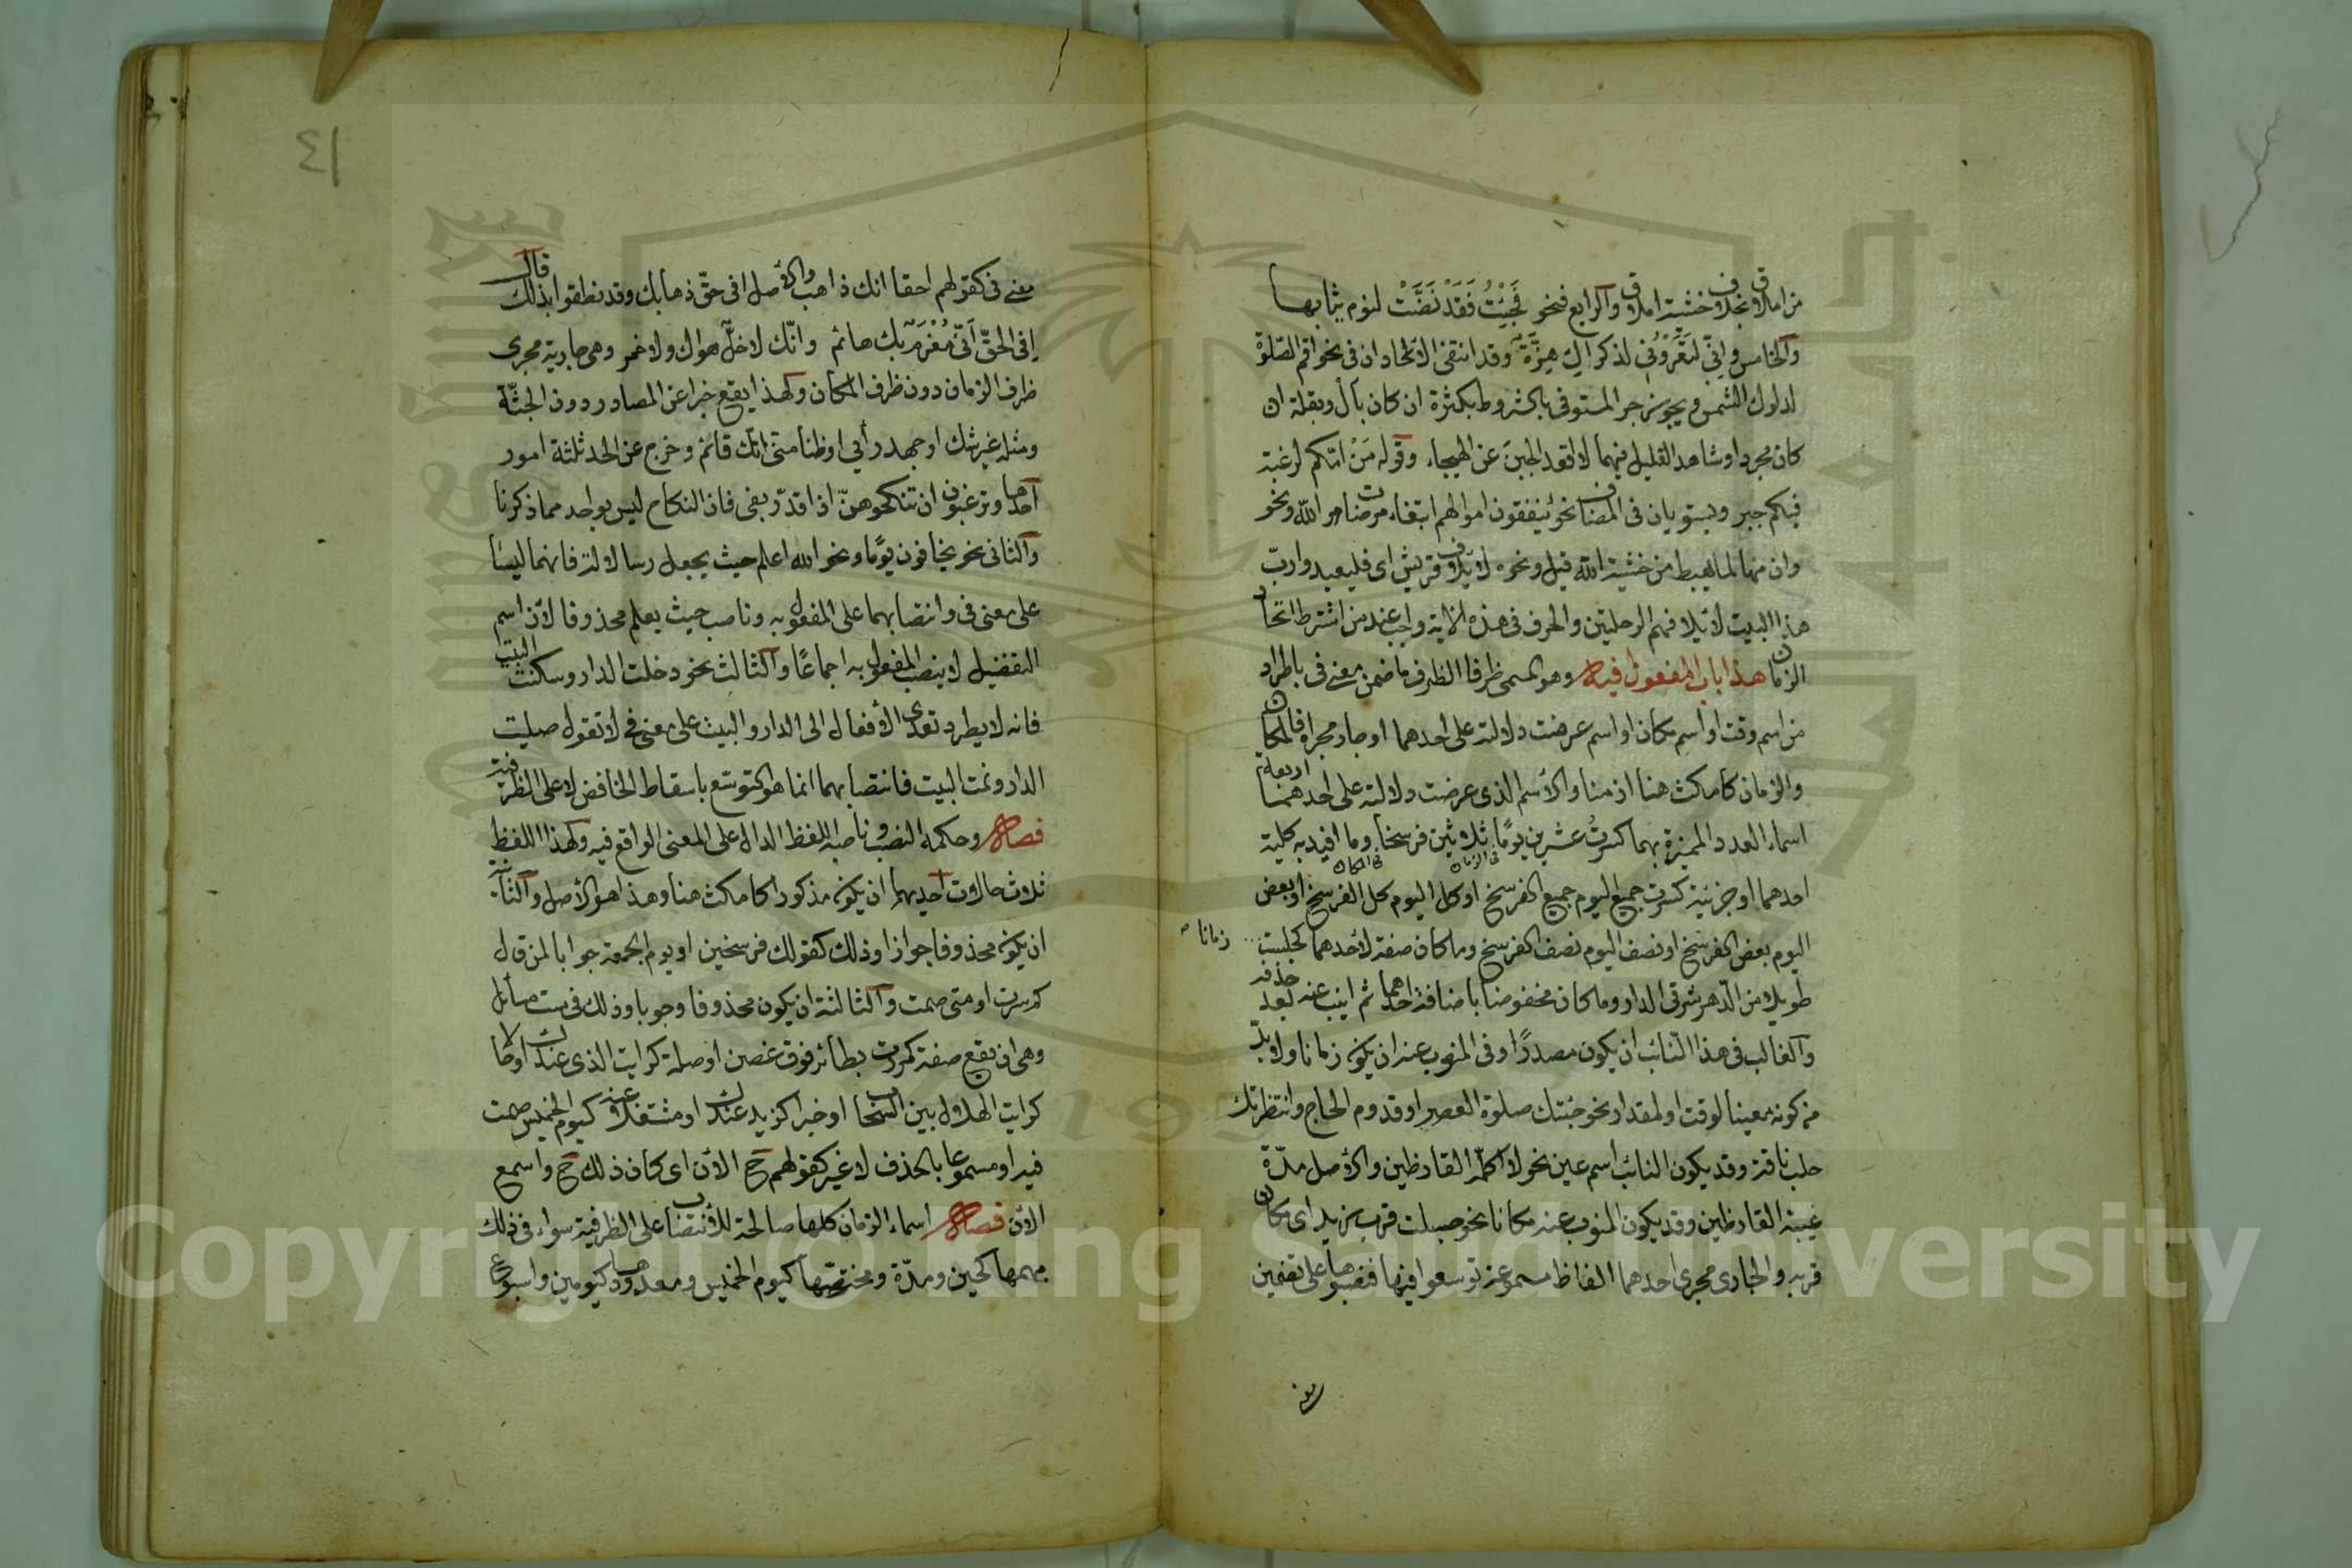 من املاق بخلاف خشية املاق والرابع فنحو فَجِئْتُ فَقَدْ نَضَّتْ لنوم ثيابها
والخامس واِنّي لتَعْرُوْني لذكراك هِزَّةٌ وقد انتفى الاتحادان في نحو اقم الصّلوة
لدلوك الشمس ويجوز جر المستوفى بالشروط بكثرة ان كان بأل وبقلة ان
كان مجردا وشاهد القليل فيهما لا اقعد الجبنَ عن الهيجاء وقوله مَنْ امّكم لرغبة
فيكم جبر ويستويان في المضاف نحو ينفقون اموالهم ابتغاء مرضات الله ونحو
وان منها لما يهبط من خشية الله قيل ونحوه لايلاف قريش اى فليعبدوا ربّ
هذا البيت لايلافهم الرحلتين والحرف في هذه الاية واجب عند من اشترط اتحاد
الزمان هذا باب المفعول فيه وهو المسمى ظرفا الظرف ما ضمن معنى في باطراد
من اسم وقت او اسم مكان او اسم عرضت دلالته على احدهما او جار مجراه فالمكان
والزمان كامكث هنا ازمنا والاسم الذي عرضت دلالته على احدهما اربعة
اسماء العدد المميزة بهما كسرتُ عشرين يومًا ثلاثين فرسخا وما افيد به كلية
في الزمان في المكان
احدهما او جزئيته كسرت جميع اليوم جميع الفرسخ او كل اليوم كل الفرسخ او بعض
اليوم بعض الفرسخ او نصف اليوم نصف الفرسخ وما كان صفة لاحدهما كجلست زمانا
طويلا من الدهر شرقي الدار وما كان مخفوضا باضافة احدهما ثم انيب عنه بعد حذفه
والغالب في هذا النائب ان يكون مصدرًا وفي المنوب عنه ان يكون زمانا ولا بدّ
من كونه معينا لوقت او لمقدار نحو جئتك صلوة العصر او قدوم الحاج وانتظرتك
حلب ناقة وقد يكون النائب اسم عين نحو لا اكلمه القارظين والاصل مدّة
غيبة القارظين وقد يكون المنوب عنه مكانا نحو جلست قرب زيد اى مكان
قربه والجارى مجرى احدهما الفاظ مسموعة توسعوا فيها فنصبوها على تضمين
معنى
٤١
معنى في كقولهم احقا انك ذاهب والاصل افى حقّ ذهابك وقد نطقوا بذلك قال
اِفى الحقّ اَنّي مُغْرَمٌ بك هائم وانّك لا خلٌّ هواك ولا خمر وهي جارية مجرى
ظرف الزمان دون ظرف المكان ولهذا يقع خبرا عن المصادر دون الجثّة
ومثله غير شك او جهد رأيي او ظنا منّى انّك قائم وخرج عن الحد ثلثة امور
احدها وترغبون ان تنكحوهنّ اذا قدّر بفي فان النكاح ليس بواحد مما ذكرنا
والثاني نحو يخافون يومًا ونحو الله اعلم حيث يجعل رسالاته فانهما ليسا
على معنى في وانتصابهما على المفعول به وناصب حيث يعلم محذوفا لان اسم
التفضيل لا ينصب المفعول به اجماعًا والثالث نحو دخلت الدار وسكنت البيت
فانه لا يطرد تعدى الأفعال الى الدار والبيت على معنى في لا تقول صليت
الدار ونمت البيت فانتصابهما انما هو لتوسّع باسقاط الخافض لا على الظرفية
فصل وحكمه النصب وناصبه اللفظ الدال على المعنى الواقع فيه ولهذا اللفظ
ثلاث حالات احديهما ان يكون مذكورا كامكث هنا وهذا هو الاصل والثاني
ان يكون محذوفا جوازا وذلك كقولك فرسخين او يوم الجمعة جوابا لمن قال
كم سرت او متى صمت والثالثة ان يكون محذوفا وجوبا وذلك في ست مسائل
وهي ان يقع صفة كمررت بطائر فوق غصن او صلة كرايت الذي عندك او حالا
كرايت الهلال بين السحاب او خبرا كزيد عندك او مشتغلا عنه كيوم الخميس صمت
فيه او مسموعا بالحذف لا غير كقولهم ح الان اى كان ذلك ح واسمع
الان فصل اسماء الزمان كلها صالحة للانتصاب على الظرفية سواء في ذلك
مبهمها كحين ومدّة ومختصّها كيوم الخميس ومعدودها كيومين واسبوعا
Copyright © King Saud University